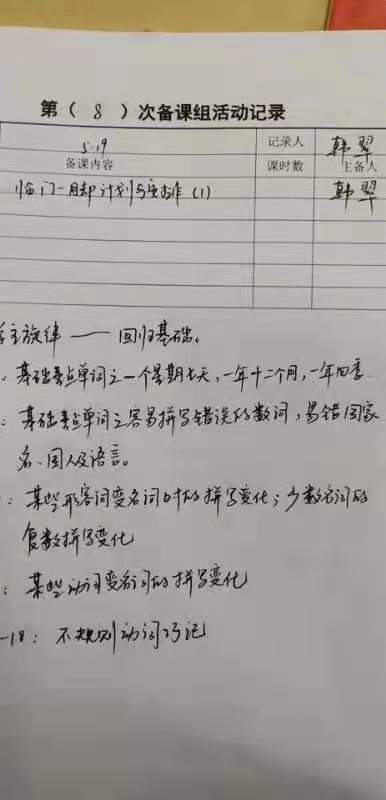 第（ 8 ）次备课组活动记录
5.19 记录人 韩翠
备课内容 课时数 主备人
临门一脚计划与实操（1） 韩翠
主旋律 —— 回归基础。
基础考点单词之一个星期七天，一年十二个月，一年四季
基础考点单词之容易拼写错误的数词，易错国家
名、国人及语言。
某些形容词变名词时的拼写变化；少数名词的
复数拼写变化
某些动词变名词的拼写变化
-18：不规则动词巧记